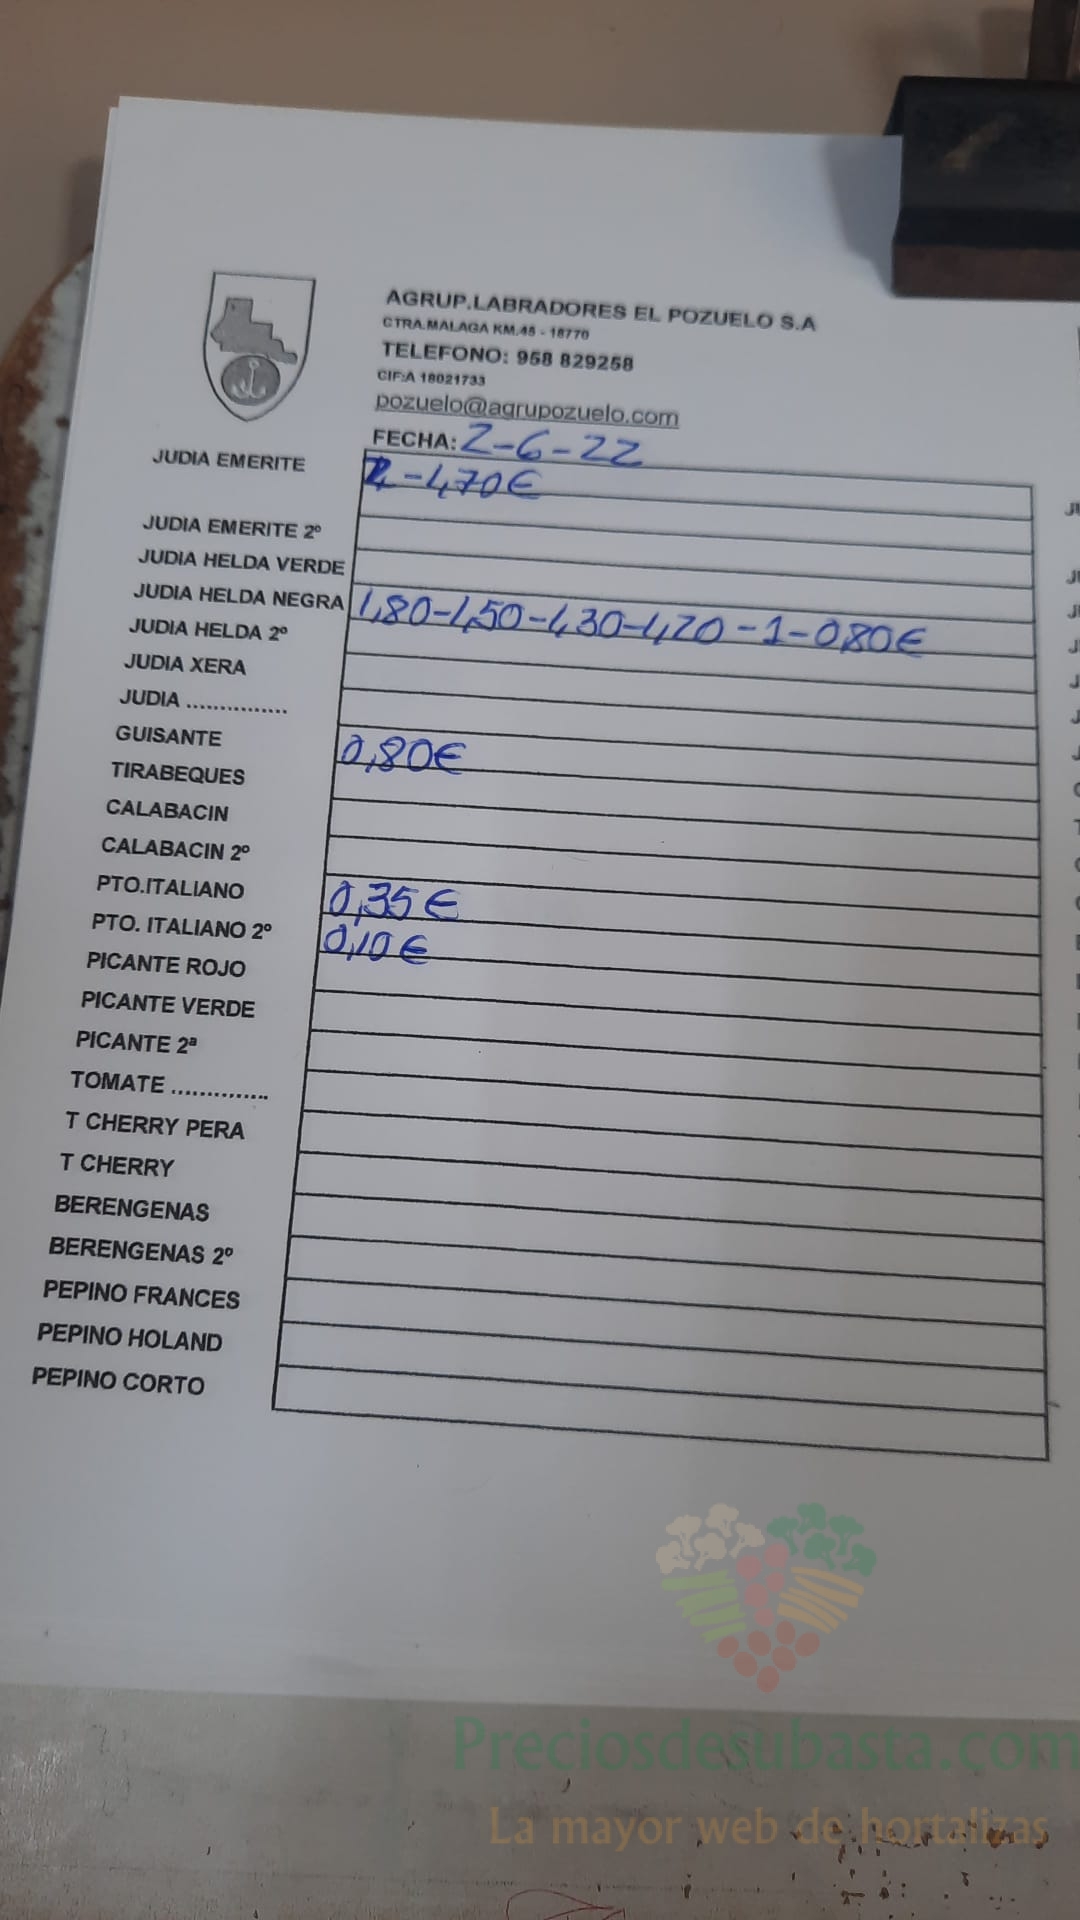 AGRUP.LABRADORES EL POZUELO S.A
CTRA.MALAGA KM.45 - 18770
TELEFONO: 958 829258
CIF:A 18021733
pozuelo@agrupozuelo.com
FECHA: 2-6-22
JUDIA EMERITE 2-1,70€
JUDIA EMERITE 2º
JUDIA HELDA VERDE
JUDIA HELDA NEGRA 1,80-1,50-1,30-1,20-1-0,80€
JUDIA HELDA 2º
JUDIA XERA
JUDIA ...............
GUISANTE 0,80€
TIRABEQUES
CALABACIN
CALABACIN 2º
PTO.ITALIANO 0,35€
PTO. ITALIANO 2º 0,10€
PICANTE ROJO
PICANTE VERDE
PICANTE 2ª
TOMATE ..............
T CHERRY PERA
T CHERRY
BERENGENAS
BERENGENAS 2º
PEPINO FRANCES
PEPINO HOLAND
PEPINO CORTO
Preciosdesubasta.com
La mayor web de hortalizas